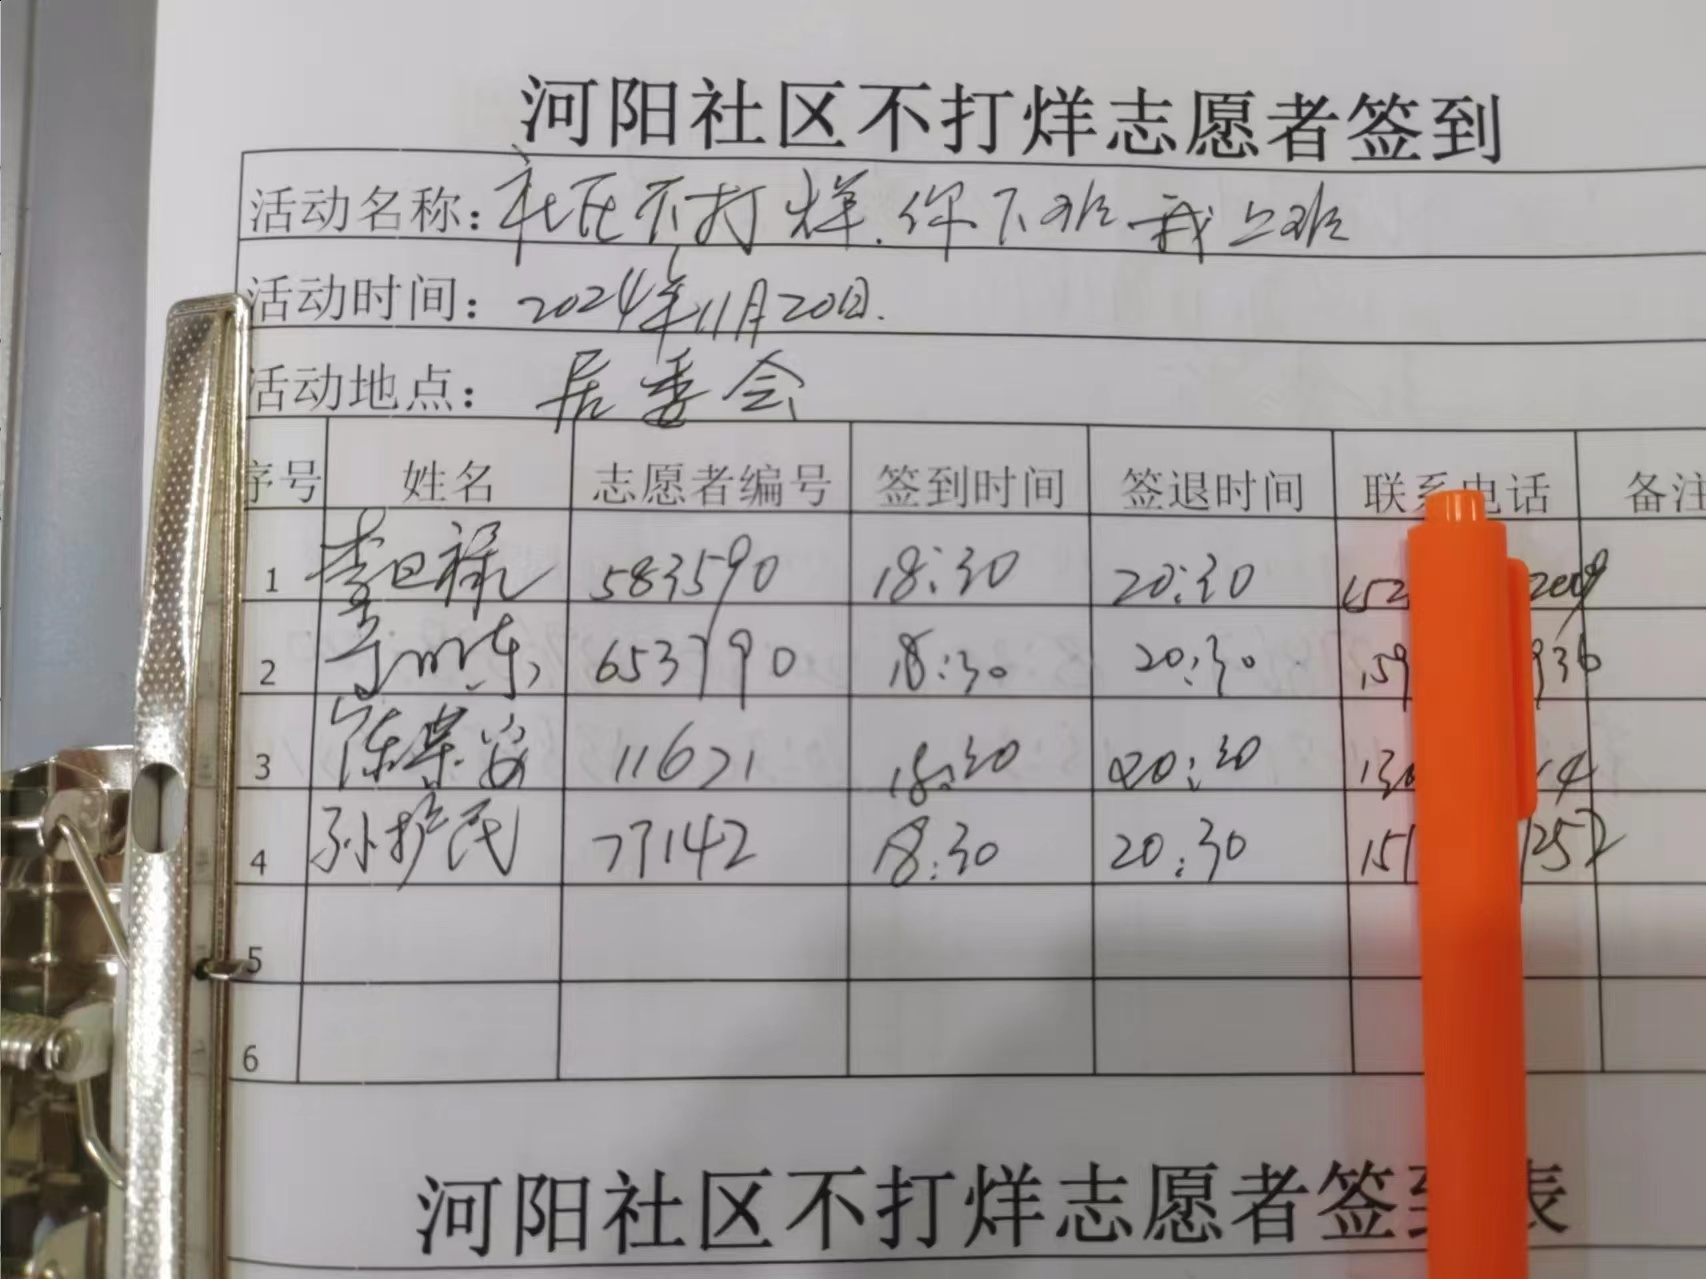 河阳社区不打烊志愿者签到
活动名称：社区不打烊.你下班我上班
活动时间：2024年11月20日.
活动地点：居委会
序号 姓名 志愿者编号 签到时间 签退时间 联系电话 备注
1 583590 18:30 20:30
2 653790 18:30 20:30
3 陈荣安 11671 18:30 20:30
4 孙护民 77142 18:30 20:30
5
6
河阳社区不打烊志愿者签到表